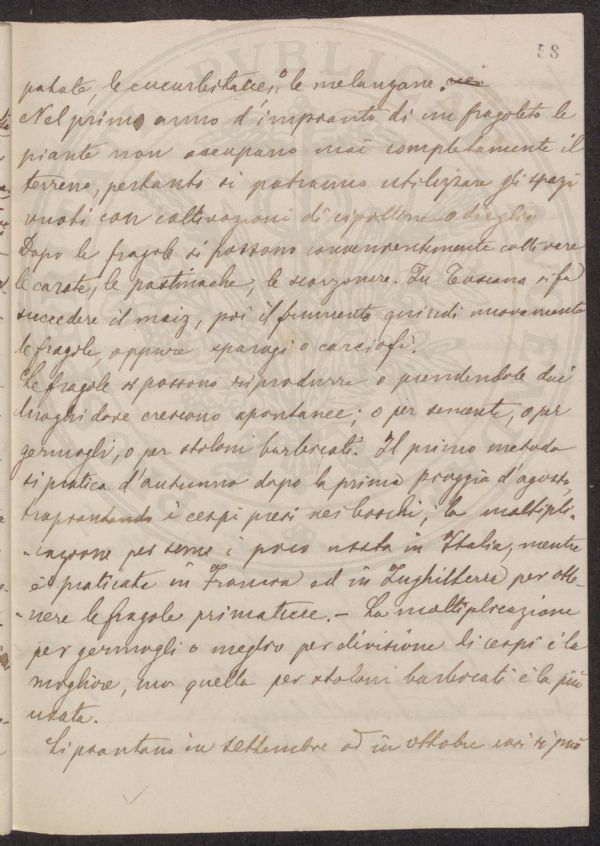 58
patate, le cucurbitacee, o le melanzane.
Nel primo anno d'impianto di un fragoleto le
piante non occupano mai completamente il
terreno, pertanto si potranno utilizzare gli spazi
vuoti con coltivazioni di cipolline o d'aglio.
Dopo le fragole si possono convenientemente coltivare
le carote, le pastinache, le scorzonere. In Toscana si fa
succedere il maiz, poi il frumento quindi nuovamente
le fragole, oppure sparagi o carciofi.
Le fragole si possono riprodurre o prendendole dai
luoghi dove crescono spontanee; o per semente, o per
germogli, o per stoloni barbocati. Il primo metodo
si pratica d'autunno dopo la prima pioggia d'agosto,
trapiantando i cespi presi nei boschi; la moltipli-
-cazione per seme è poco usata in Italia, mentre
è praticata in Francia ed in Inghilterra per otte-
-nere le fragole primaticce. - La moltiplicazione
per germogli o meglio per divisione di cespi è la
migliore, ma quella per stoloni barbocati è la più
usata.
Si piantano in settembre od in ottobre così si può